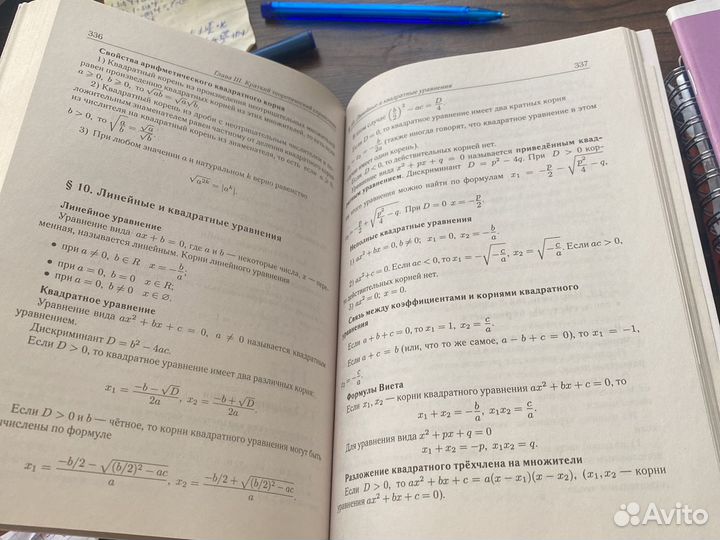 336
Глава III. Краткий теоретический
Свойства арифметического квадратного корня
1) Квадратный корень из произведения неотрицательных множителей
равен произведению квадратных корней из этих множителей, то есть, если
a ⩾ 0, b ⩾ 0, то √(ab) = √a√b.
2) Квадратный корень из дроби с неотрицательным числителем и по-
ложительным знаменателем равен частному от деления квадратного корня
из числителя на квадратный корень из знаменателя, то есть, если a ⩾ 0,
b > 0, то √(a/b) = √a/√b.
3) При любом значении a и натуральном k верно равенство
√(a^(2k)) = |a^k|.
§ 10. Линейные и квадратные уравнения
Линейное уравнение
Уравнение вида ax + b = 0, где a и b — некоторые числа, x — пере-
менная, называется линейным. Корни линейного уравнения
• при a ≠ 0, b ∈ R x = −b/a;
• при a = 0, b = 0 x ∈ R;
• при a = 0, b ≠ 0 x ∈ ∅.
Квадратное уравнение
Уравнение вида ax² + bx + c = 0, a ≠ 0 называется квадратным
уравнением.
Дискриминант D = b² − 4ac.
Если D > 0, то квадратное уравнение имеет два различных корня:
x₁ = (−b − √D)/2a, x₂ = (−b + √D)/2a.
Если D > 0 и b — чётное, то корни квадратного уравнения могут быть
вычислены по формуле
x₁ = (−b/2 − √((b/2)² − ac))/a, x₂ = (−b/2 + √((b/2)² − ac))/a.
Линейные и квадратные уравнения
337
этом случае (b/2)² − ac = D/4
Если D = 0, то квадратное уравнение имеет два кратных корня
= −b/2a (также иногда говорят, что квадратное уравнение в этом
имеет один корень).
Если D < 0, то действительных корней нет.
Уравнение вида x² + px + q = 0 называется приведённым квад-
уравнением. Дискриминант D = p² − 4q. При D > 0 кор-
уравнения можно найти по формулам x₁ = −p/2 − √(p²/4 − q),
x₂ = −p/2 + √(p²/4 − q). При D = 0 x = −p/2.
Неполные квадратные уравнения
1) ax² + bx = 0, b ≠ 0; x₁ = 0, x₂ = −b/a.
2) ax² + c = 0. Если ac < 0, то x₁ = −√(−c/a), x₂ = √(−c/a). Если ac > 0,
действительных корней нет.
3) ax² = 0; x = 0.
Связь между коэффициентами и корнями квадратного
уравнения
Если a + b + c = 0, то x₁ = 1, x₂ = c/a.
Если a + c = b (или, что то же самое, a − b + c = 0), то x₁ = −1,
x₂ = −c/a.
Формулы Виета
Если x₁, x₂ — корни квадратного уравнения ax² + bx + c = 0, то
x₁ + x₂ = −b/a, x₁x₂ = c/a.
Для уравнения вида x² + px + q = 0
x₁ + x₂ = −p, x₁x₂ = q.
Разложение квадратного трёхчлена на множители
Если D > 0, то ax² + bx + c = a(x − x₁)(x − x₂), (x₁, x₂ — корни
уравнения ax² + bx + c = 0).
Avito